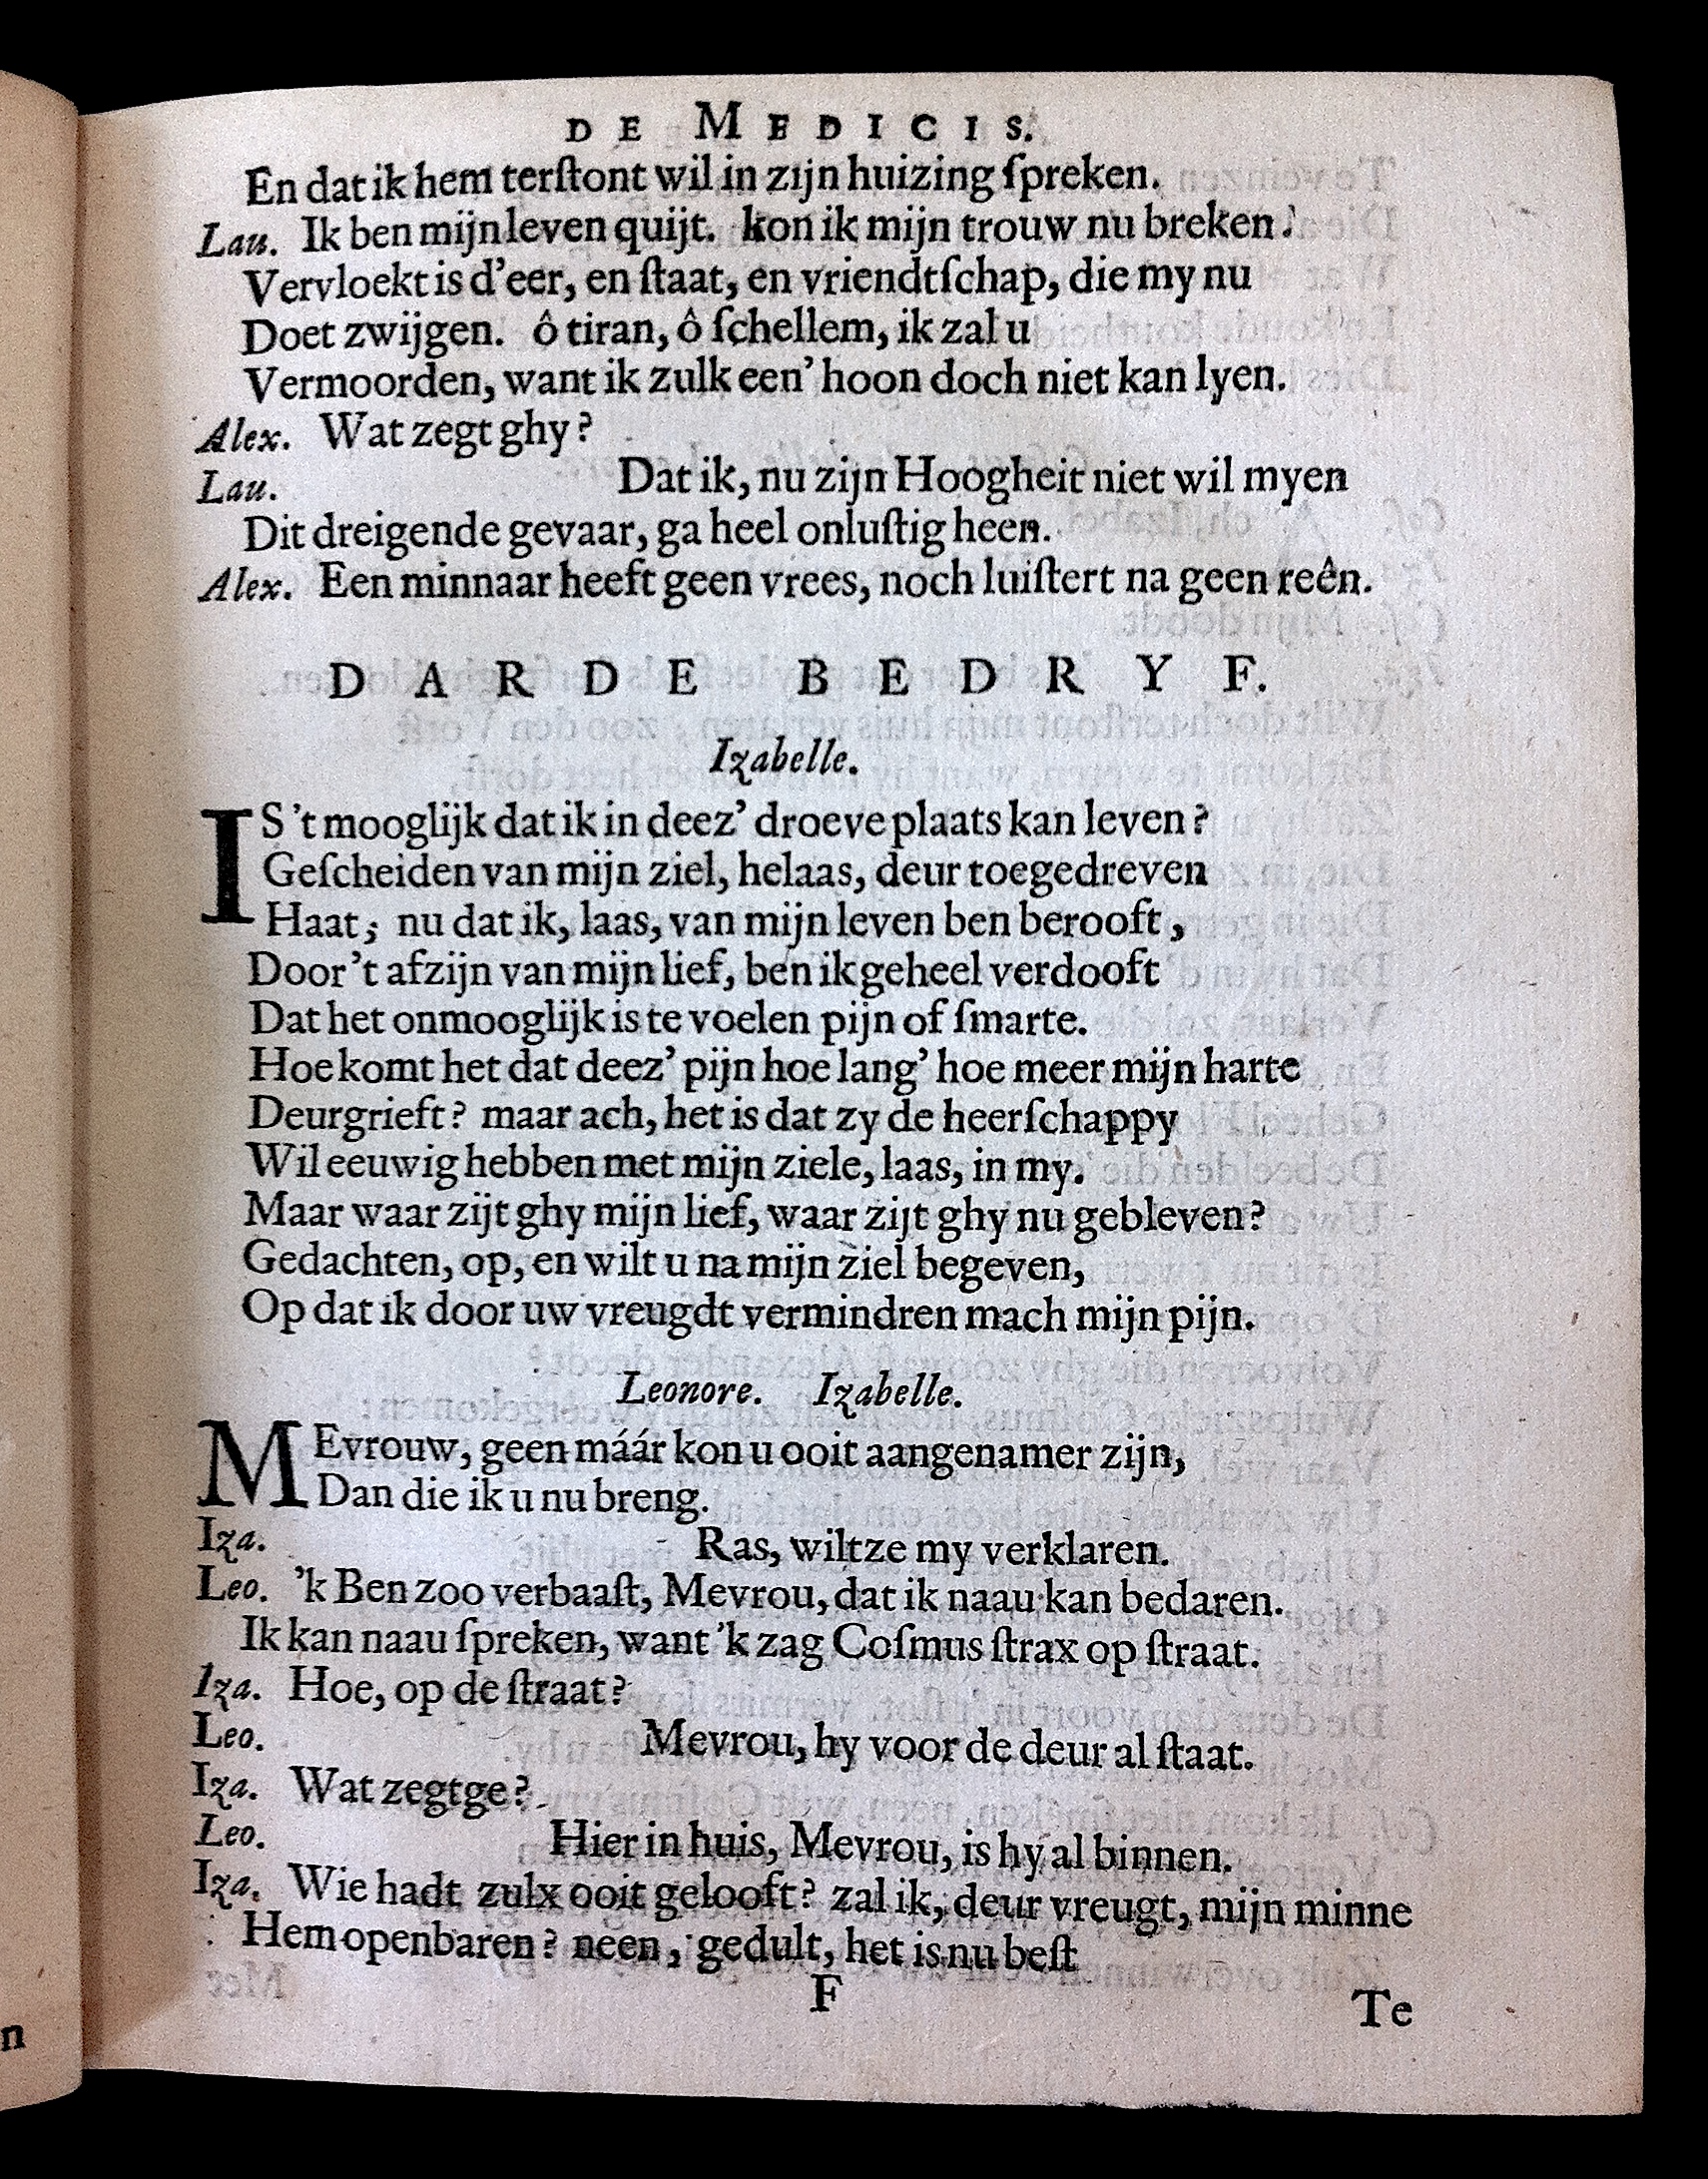 DE MEDICIS.
En dat ik hem terſtont wil in zijn huizing ſpreken.
Lau. Ik ben mijn leven quijt. kon ik mijn trouw nu breken!
Vervloekt is d'eer, en ſtaat, en vriendtſchap, die my nu
Doet zwijgen. ô tiran, ô ſchellem, ik zal u
Vermoorden, want ik zulk een' hoon doch niet kan lyen.
Alex. Wat zegt ghy?
Lau. Dat ik, nu zijn Hoogheit niet wil myen
Dit dreigende gevaar, ga heel onluſtig heen.
Alex. Een minnaar heeft geen vrees, noch luiſtert na geen reên.
DARDE BEDRYF.
Izabelle.
IS 't mooglijk dat ik in deez' droeve plaats kan leven?
Geſcheiden van mijn ziel, helaas, deur toegedreven
Haat; nu dat ik, laas, van mijn leven ben berooft,
Door 't afzijn van mijn lief, ben ik geheel verdooft
Dat het onmooglijk is te voelen pijn of ſmarte.
Hoe komt het dat deez' pijn hoe lang' hoe meer mijn harte
Deurgrieft? maar ach, het is dat zy de heerſchappy
Wil eeuwig hebben met mijn ziele, laas, in my.
Maar waar zijt ghy mijn lief, waar zijt ghy nu gebleven?
Gedachten, op, en wilt u na mijn ziel begeven,
Op dat ik door uw vreugdt vermindren mach mijn pijn.
Leonore. Izabelle.
MEvrouw, geen máár kon u ooit aangenamer zijn,
Dan die ik u nu breng.
Iza. Ras, wiltze my verklaren.
Leo. 'k Ben zoo verbaaſt, Mevrou, dat ik naau kan bedaren.
Ik kan naau ſpreken, want 'k zag Coſmus ſtrax op ſtraat.
Iza. Hoe, op de ſtraat?
Leo. Mevrou, hy voor de deur al ſtaat.
Iza. Wat zegtge?
Leo. Hier in huis, Mevrou, is hy al binnen.
Iza. Wie hadt zulx ooit gelooft? zal ik, deur vreugt, mijn minne
Hem openbaren? neen, gedult, het is nu beſt
F
Te
n